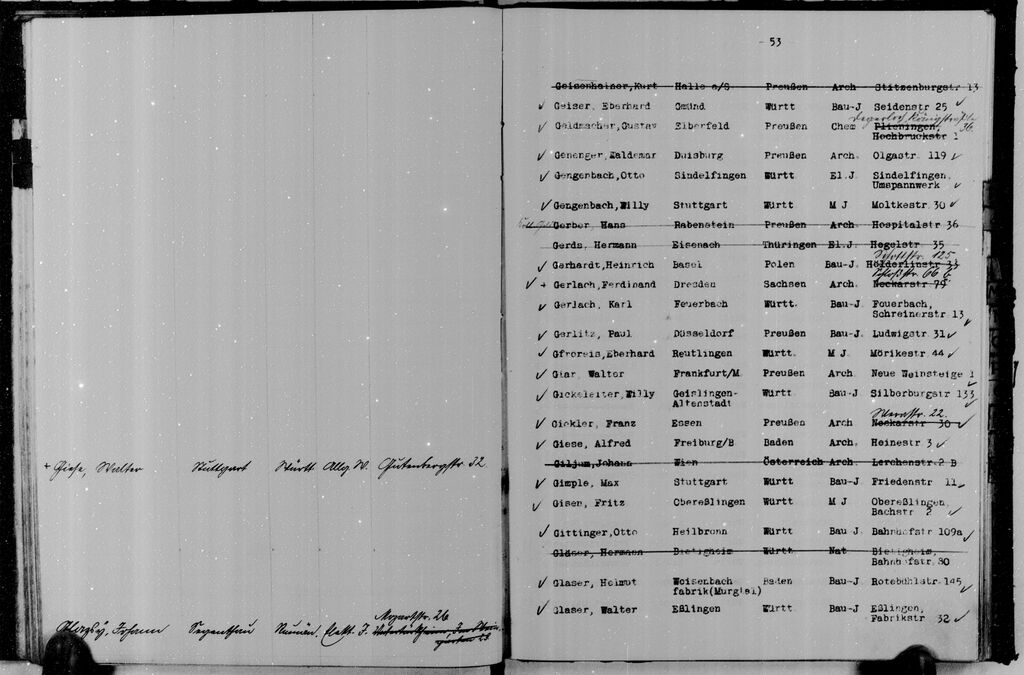 + Giese, Walter Stuttgart Württ. Allg. W. Gutenbergstr. 32
Mozartstr. 26
Johann Rumän. Elekt. J.
- 53
Geisenhainer,Kurt Halle a/S Preußen Arch Stitzenburgstr 13
Geiser, Eberhard Gmünd Württ Bau-J Seidenstr 25
Degerloch, Königstraße 36
Geldmacher,Gustav Elberfeld Preußen Chem Plieningen,
Hochbruckstr 1
Genenger,Waldemar Duisburg Preußen Arch. Olgastr 119
Gengenbach,Otto Sindelfingen Württ El.J Sindelfingen,
Umspannwerk
Gengenbach,Willy Stuttgart Württ M J Moltkestr 30
Gerber Hans Rabenstein Preußen Arch. Hospitalstr 36
Gerds, Hermann Eisenach Thüringen El.J Hegelstr 35
125
Gerhardt,Heinrich Basel Polen Bau-J. Hölderlinstr 33
Schloßstr. 66
+ Gerlach,Ferdinand Dresden Sachsen Arch. Neckarstr 79
Gerlach, Karl Feuerbach Württ. Bau-J Feuerbach,
Schreinerstr 13
Gerlitz, Paul Düsseldorf Preußen Bau-J. Ludwigstr 31
Gfroreis,Eberhard Reutlingen Württ. M J. Mörikestr 44
Giar, Walter Frankfurt/M Preußen Arch. Neue Weinsteige 1
Gickeleiter,Willy Geislingen- Württ Bau-J Silberburgstr 133
Altenstadt
Werastr. 22.
Gickler, Franz Essen Preußen Arch Neckarstr 30
Giese, Alfred Freiburg/B Baden Arch Heinestr 3
Giljum,Johann Wien Österreich Arch. Lerchenstr 2 B
Gimple, Max Stuttgart Württ Bau-J Friedenstr 11
Gisen, Fritz Obereßlingen Württ M J Obereßlingen,
Bachstr 2
Gittinger,Otto Heilbronn Württ Bau J. Bahnhofstr 109a
Gläser, Hermann Bietigheim Württ Nat Bietigheim,
Bahnhofstr 80
Glaser, Helmut Weisenbach Baden Bau-J Rotebühlstr 145
fabrik(Murgtal)
Glaser, Walter Eßlingen Württ Bau-J Eßlingen,
Fabrikstr 32